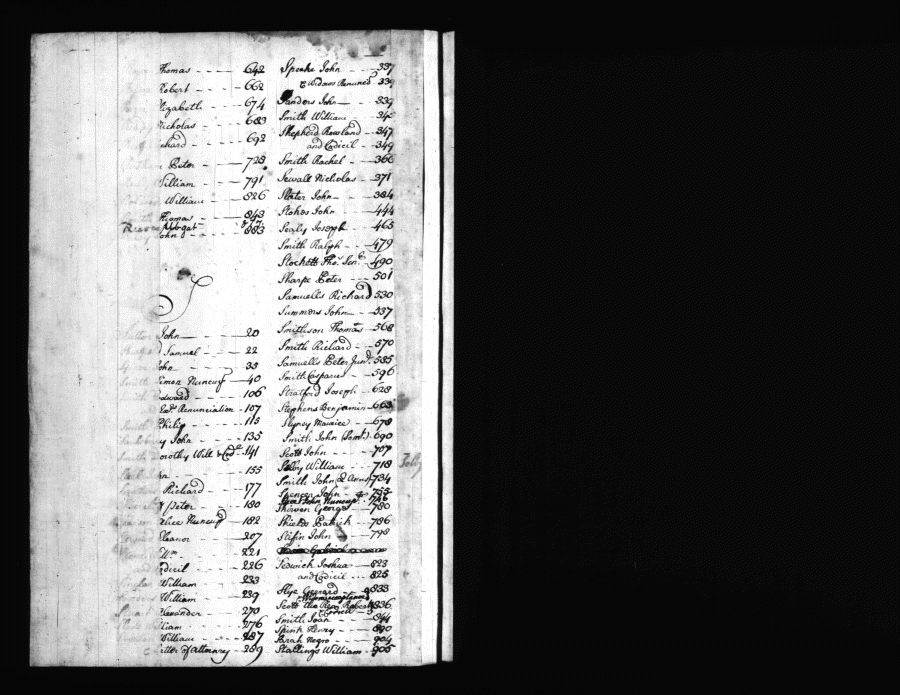 Thomas - - - 642
Robert - - - 662
Elizabeth - - - 674
Nicholas - - - 683
chard - - - 692
Peter - - - 728
William - - - 791
William - - 826
Thomas - - - 843
John - - - 883
S
John - - - 20
Samuel - - - 22
John - - - 33
Simon Nuncup - 40
Edward - - - 106
Ex. Renunciation - 107
Philip - - - 115
y John - - - 135
Dorothy Will & Cod - 141
- - - 155
Richard - - - 177
Peter - - - 180
Alice Nuncup - 182
Eleanor - - - 207
Wm - - - 221
Codicil - - - 226
William - - - 233
William - - - 239
Alexander - - - 270
liam - - - 276
William - - - 287
Letter of attorney - 289
Speake John - - - 337
& Widows Renunc - 339
Sanders John - - 339
Smith William - - 34
Shepherd Rowland - 347
and Codicil - - 349
Smith Rachel - - 366
Sewall Nicholas - - 371
Slater John - - 384
Stokes John - - - 444
Sealy Joseph - - 465
Smith Ralph - - 479
Stockett Tho. Sen. - 490
Sharpe Peter - - - 501
Samuells Richard 530
Summers John - - 537
Smithson Thomas - 568
Smith Richard - - 570
Samuells Peter Jun. - 585
Smith Casparus - 596
Stratford Joseph - - 628
Stephens Benjamin - 663
Slyney Maurice - - 678
Smith John (Somt) - 690
Scott John - - - 707
Selby William - - 718
Smith John & Ann - 734
Spencer John
John Nuncup.
George - 780
Shields Patrick - - 786
Stiffin John - - 798
Sedwick Joshua - - 823
and Codicil - - - 825
Slye Gerrard - 833
Scott the Revd. Robert 836
Codicil
Smith Joan - - 841
Spink Henry - - 890
Sarah Negro - - - 904
Stallings William - - 905